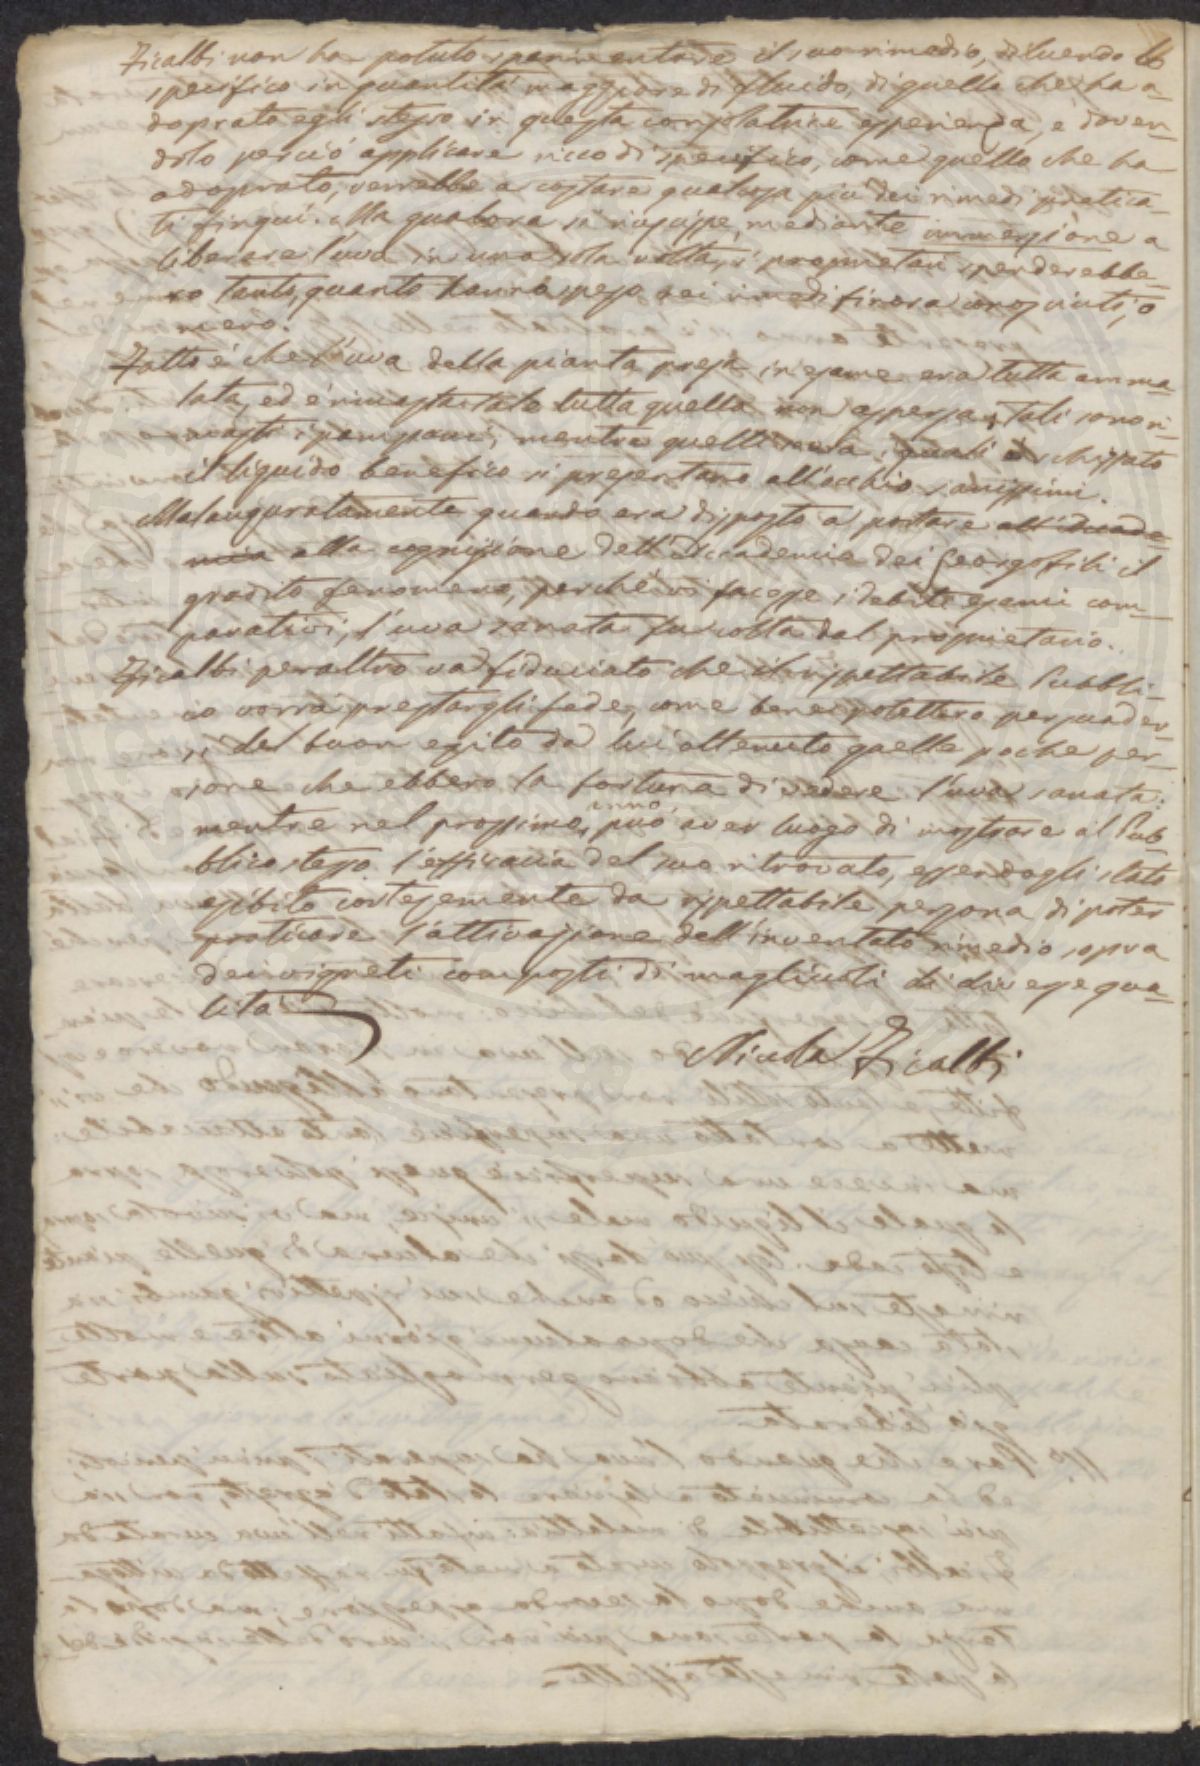 Ficalbi non ha potuto sperimentare il suo rimedio, diluendo lo
specifico in quantità maggiore di fluido, di quello che ha a-
doprato egli stesso in questa consolatrice esperienza, e doven-
dolo perciò applicare ricco di specifico, come quello che ha
adoprato, verrebbe a costare qualcosa più dei rimedi pratica-
ti finquì. Ma qualora si riuscisse, mediante immersione a
liberare l'uva in una sola volta, i proprietari spenderebbe-
ro tanto, quanto hanno speso, nei rimedi finora conosciuti, o
meno.
Fatto è che l'uva della pianta presa in esame era tutta amma-
lata, ed è rimasta tale tutta quella non aspersa, tali sono ri-
masti i pampani; mentre quelli sova i quali è schizzato
il liquido benefico si presentano all'occhio sanissimi.
Malauguratamente quando era disposto a portare all'Accade-
mia alla cognizione dell'Accademia dei Georgofili il
gradito fenomeno, perchè vi facesse i debiti esami com-
parativi, l'uva sanata fu colta dal proprietario.
Ficalbi peraltro va fiduciato che il rispettabile Pubbli-
co vorrà prestargli fede, come bene potettero persuader-
si del buon esito da lui ottenuto quelle poche per-
sone che ebbero la fortuna di vedere l'uva sanata:
mentre nel prossimo anno, può aver luogo di mostrare al Pub-
blico stesso l'efficacia del suo ritrovato, essendogli stato
esibito cortesemente da rispettabile persona di poter
praticare l'attivazione dell'inventato rimedio sopra
dei vigneti composti di magliuoli di diverse qua-
lità
Nicola Ficalbi